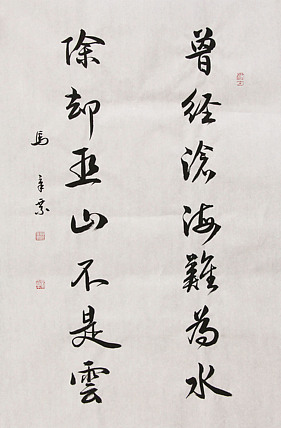 曾经滄海難為水
除却巫山不是雲
馬